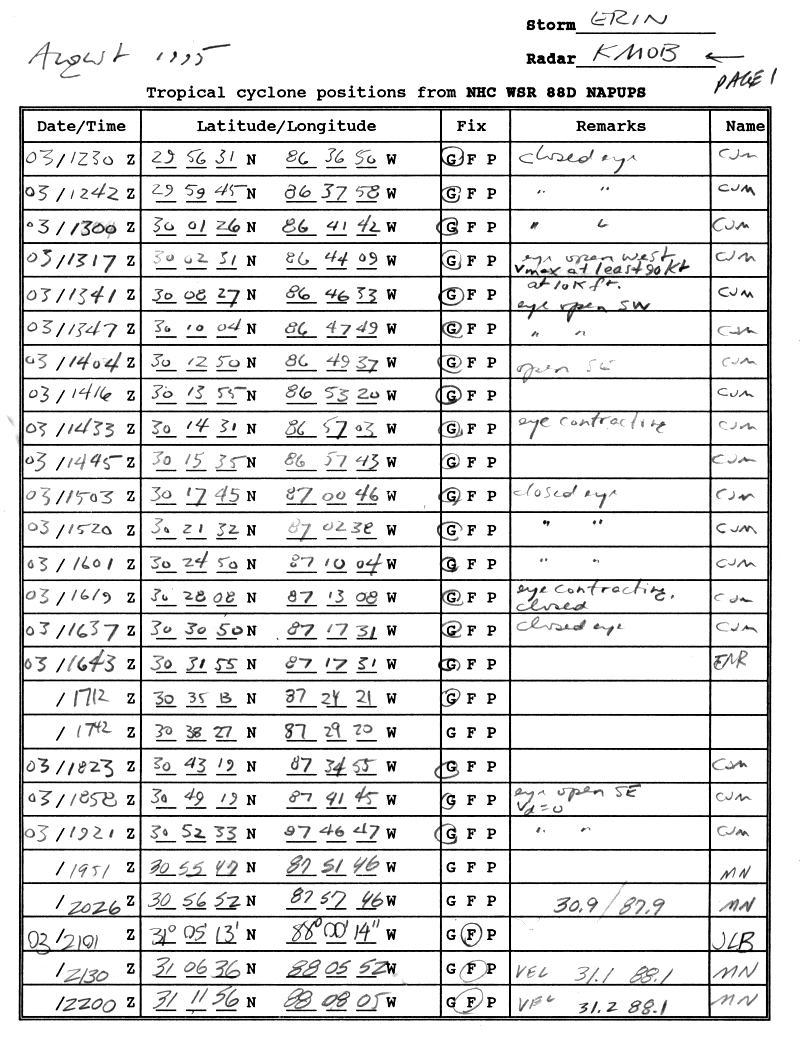 Storm ERIN
August 1995
Radar KMOB ←
PAGE 1
Tropical cyclone positions from NHC WSR 88D NAPUPS
Date/Time Latitude/Longitude Fix Remarks Name
03/1230 Z 29 56 31 N 86 36 50 W G F P closed eye CJM
03/1242 Z 29 59 45 N 86 37 58 W G F P " " CJM
03/1300 Z 30 01 26 N 86 41 42 W G F P " " CJM
03/1317 Z 30 02 31 N 86 44 09 W G F P eye open west CJM
Vmax at least 90 kt
at 10K ft.
03/1341 Z 30 08 27 N 86 46 33 W G F P eye open SW CJM
03/1347 Z 30 10 04 N 86 47 49 W G F P " " CJM
03/1404 Z 30 12 50 N 86 49 37 W G F P open SE CJM
03/1416 Z 30 13 55 N 86 53 20 W G F P CJM
03/1433 Z 30 14 31 N 86 57 03 W G F P eye contracting CJM
03/1445 Z 30 15 35 N 86 57 43 W G F P CJM
03/1503 Z 30 17 45 N 87 00 46 W G F P closed eye CJM
03/1520 Z 30 21 32 N 87 02 38 W G F P " " CJM
03/1601 Z 30 24 50 N 87 10 04 W G F P " " CJM
03/1619 Z 30 28 08 N 87 13 08 W G F P eye contracting, CJM
closed
03/1637 Z 30 30 50 N 87 17 31 W G F P closed eye CJM
03/1643 Z 30 31 55 N 87 17 31 W G F P ENR
/1712 Z 30 35 13 N 87 24 21 W G F P
/1742 Z 30 38 27 N 87 29 20 W G F P
03/1823 Z 30 43 19 N 87 34 55 W G F P CJM
03/1858 Z 30 49 19 N 87 41 45 W G F P eye open SE CJM
Vd=0
03/1921 Z 30 52 33 N 97 46 47 W G F P " " CJM
/1951 Z 30 55 47 N 87 51 46 W G F P MN
/2026 Z 30 56 52 N 87 57 46 W G F P 30.9/87.9 MN
03/2101 Z 31° 05' 13' N 88° 00' 14" W G F P JLB
/2130 Z 31 06 36 N 88 05 52 W G F P VEL 31.1 88.1 MN
/2200 Z 31 11 56 N 88 08 05 W G F P VEL 31.2 88.1 MN